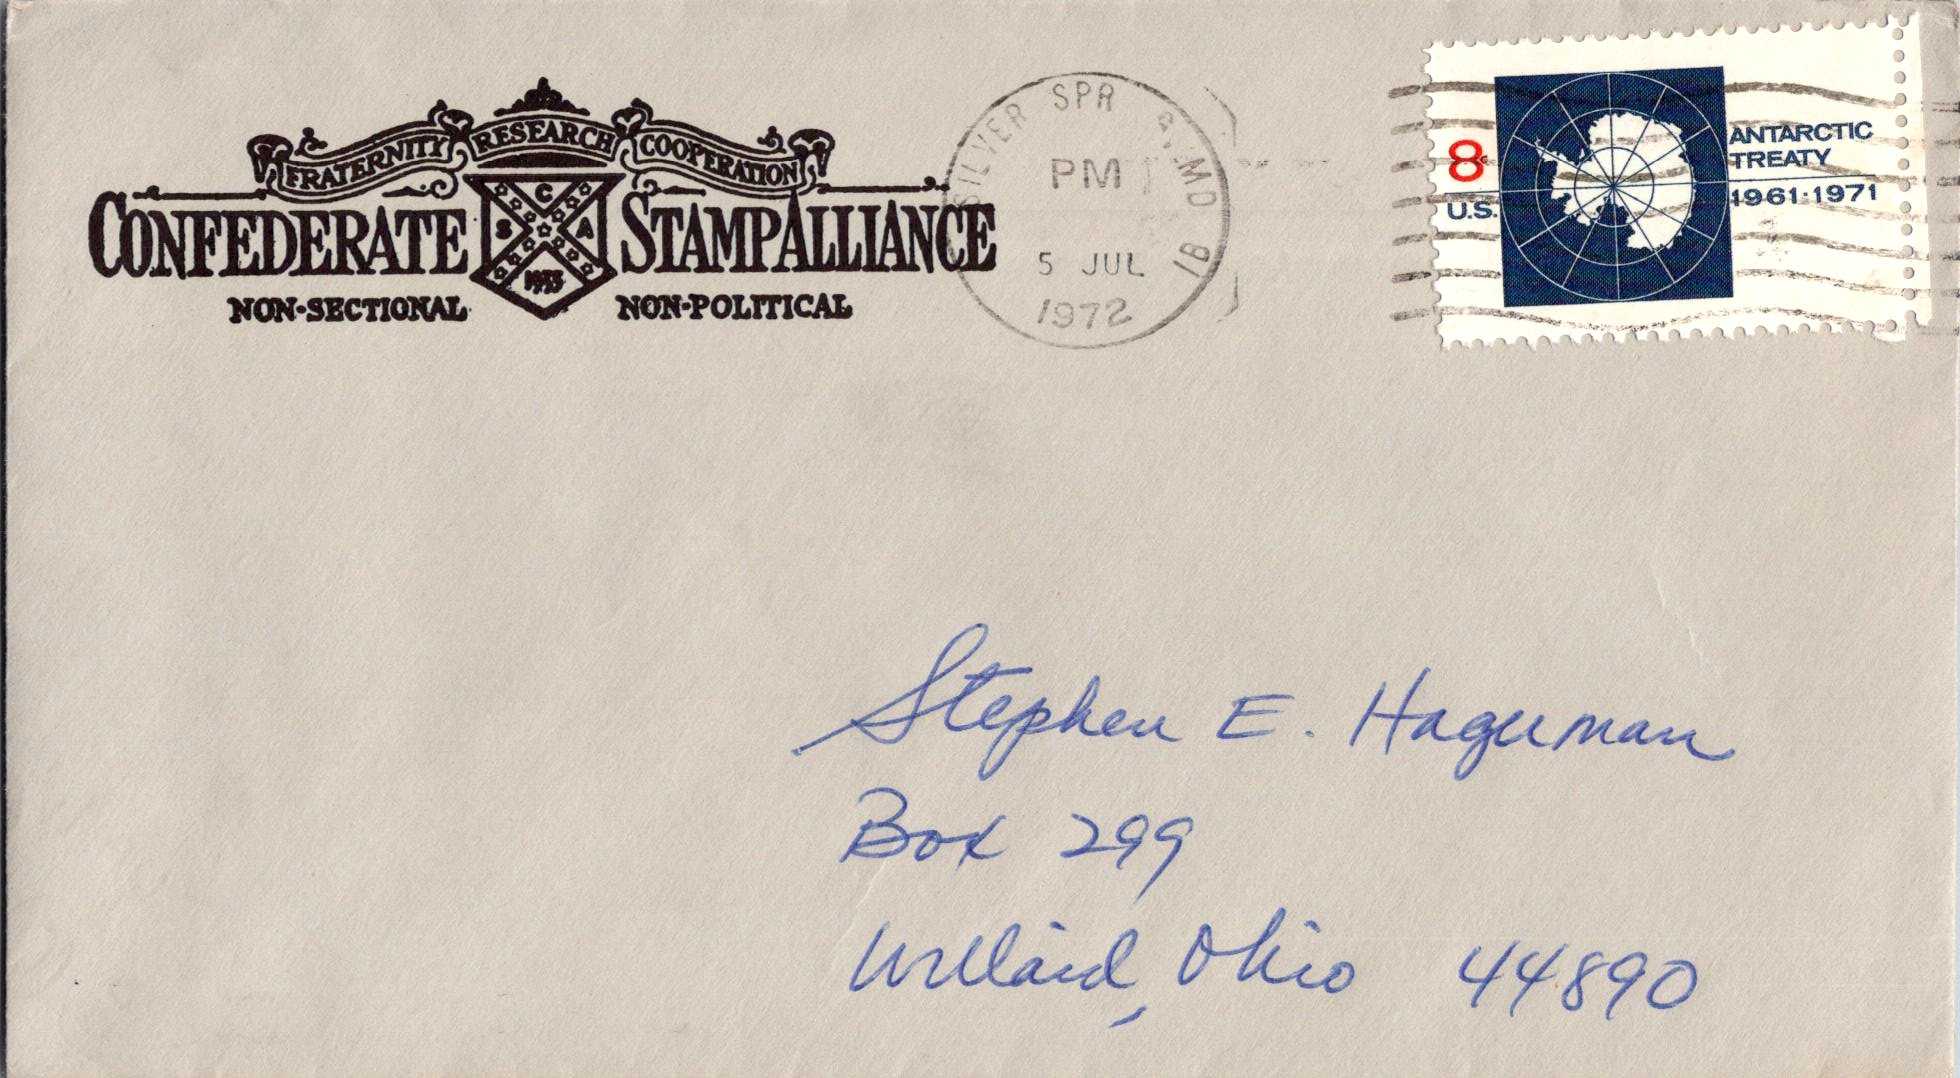 FRATERNITY RESEARCH COOPERATION
CONFEDERATE STAMP ALLIANCE
C
S A
1935
NON-SECTIONAL NON-POLITICAL
SILVER SPR G, MD
PM
5 JUL
1972
8c
U.S.
ANTARCTIC
TREATY
1961·1971
Stephen E. Haguman
Box 299
Willard, Ohio 44890